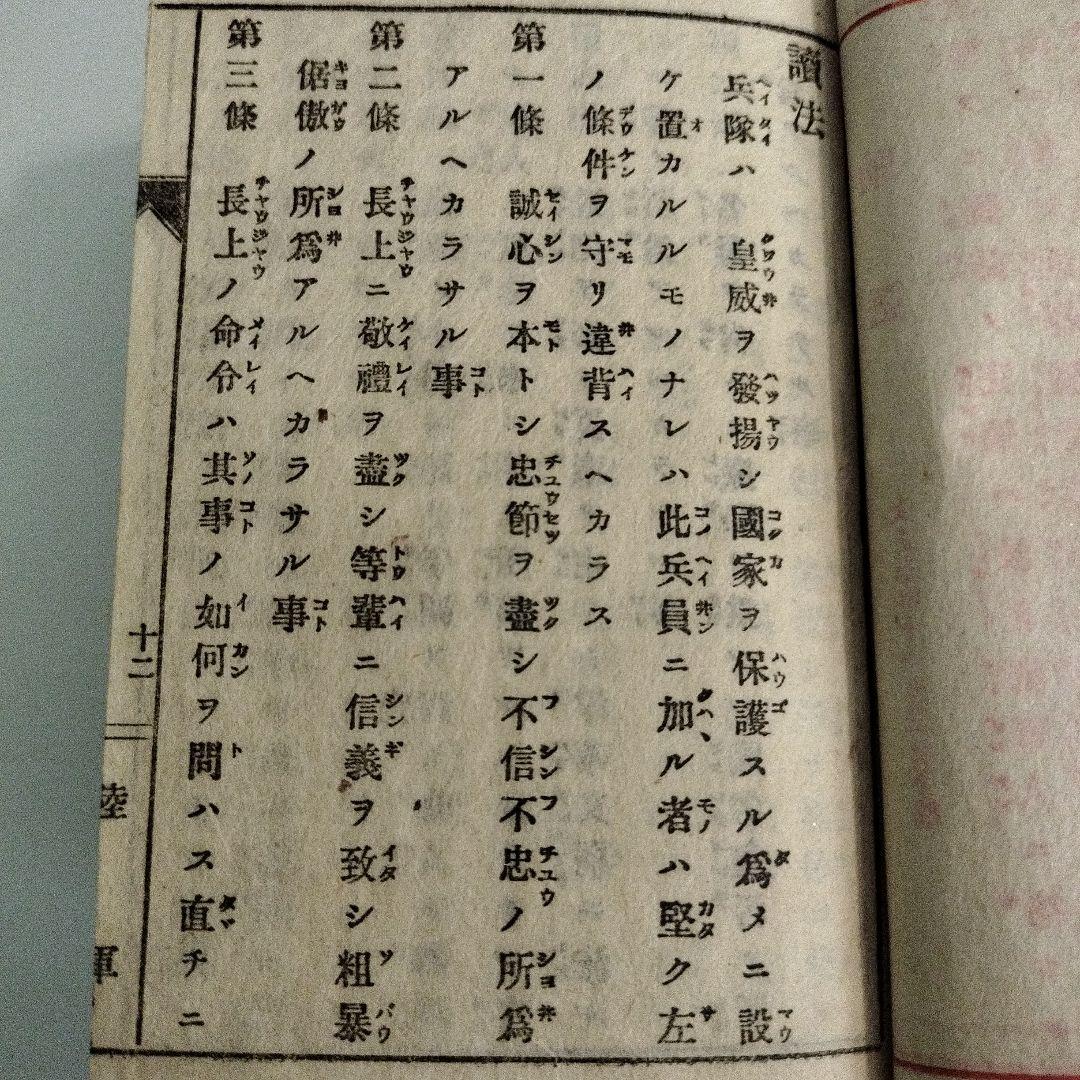 讀法
兵隊ハ 皇威ヲ發揚シ國家ヲ保護スル爲メニ設
ケ置カルルモノナレハ此兵員ニ加ル者ハ堅ク左
ノ條件ヲ守リ違背スヘカラス
第一條 誠心ヲ本トシ忠節ヲ盡シ不信不忠ノ所爲
アルヘカラサル事
第二條 長上ニ敬禮ヲ盡シ等輩ニ信義ヲ致シ粗暴
倨傲ノ所爲アルヘカラサル事
第三條 長上ノ命令ハ其事ノ如何ヲ問ハス直チニ
十二
陸軍